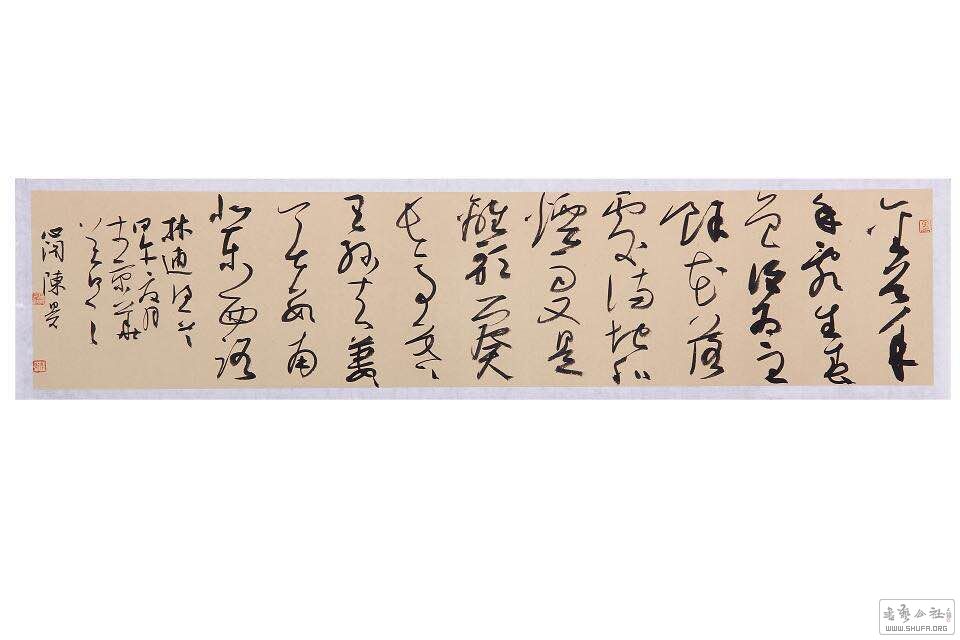 金谷年
年亂生春
色誰為主
餘花落
處滿地和
煙雨又是
離歌一闋
長亭暮
王孫去萋
萋無數南
北東西路
林逋
陳
WWW.SHUFA.ORG